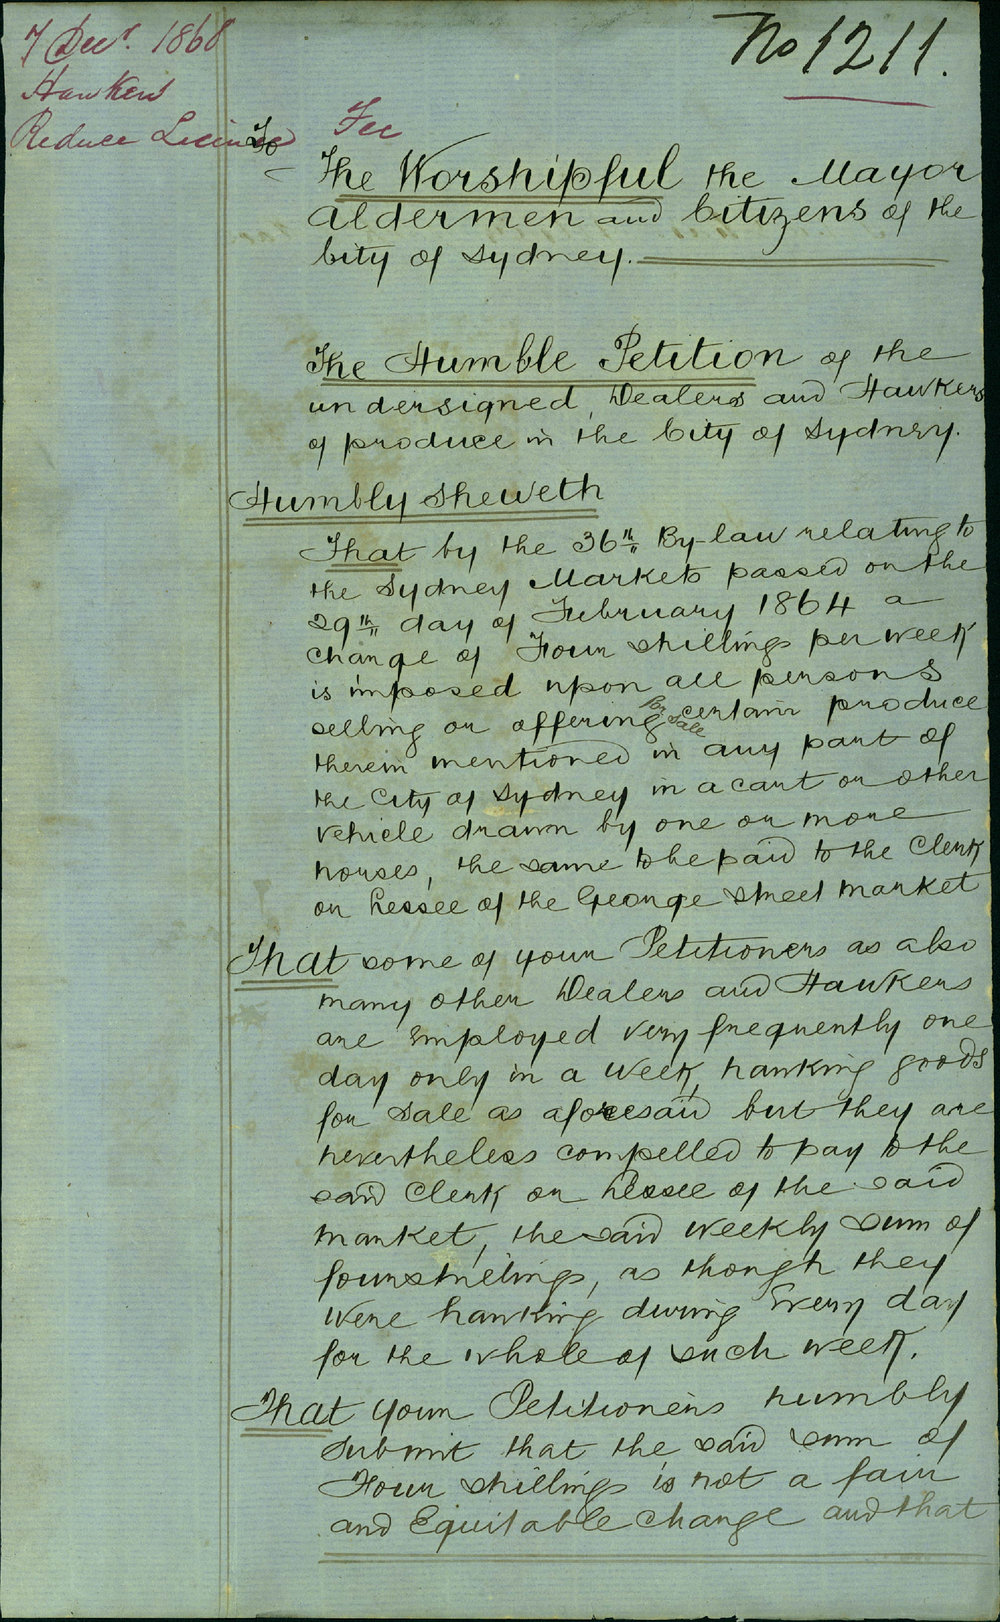 7 Decr. 1868
Hawkers
Reduce License Fee
No 1211.
To
The Worshipful the Mayor
Aldermen and Citizens of the
City of Sydney.
The Humble Petition of the
undersigned, Dealers and Hawkers
of produce in the City of Sydney.
Humbly Sheweth
That by the 36th By-law relating to
the Sydney Markets passed on the
29th day of February 1864 a
charge of Four shillings per week
is imposed upon all persons
selling or offering for sale certain produce
therein mentioned in any part of
the City of Sydney in a cart or other
vehicle drawn by one or more
horses, the same to be paid to the Clerk
or Lessee of the George Street Market
That some of your Petitioners as also
many other Dealers and Hawkers
are employed very frequently one
day only in a week, hawking goods
for sale as aforesaid but they are
nevertheless compelled to pay to the
said Clerk or Lessee of the said
market, the said weekly sum of
four shillings, as though they
were hawking during every day
for the whole of such week.
That your Petitioners humbly
submit that the said sum of
Four shillings is not a fair
and Equitable charge and that